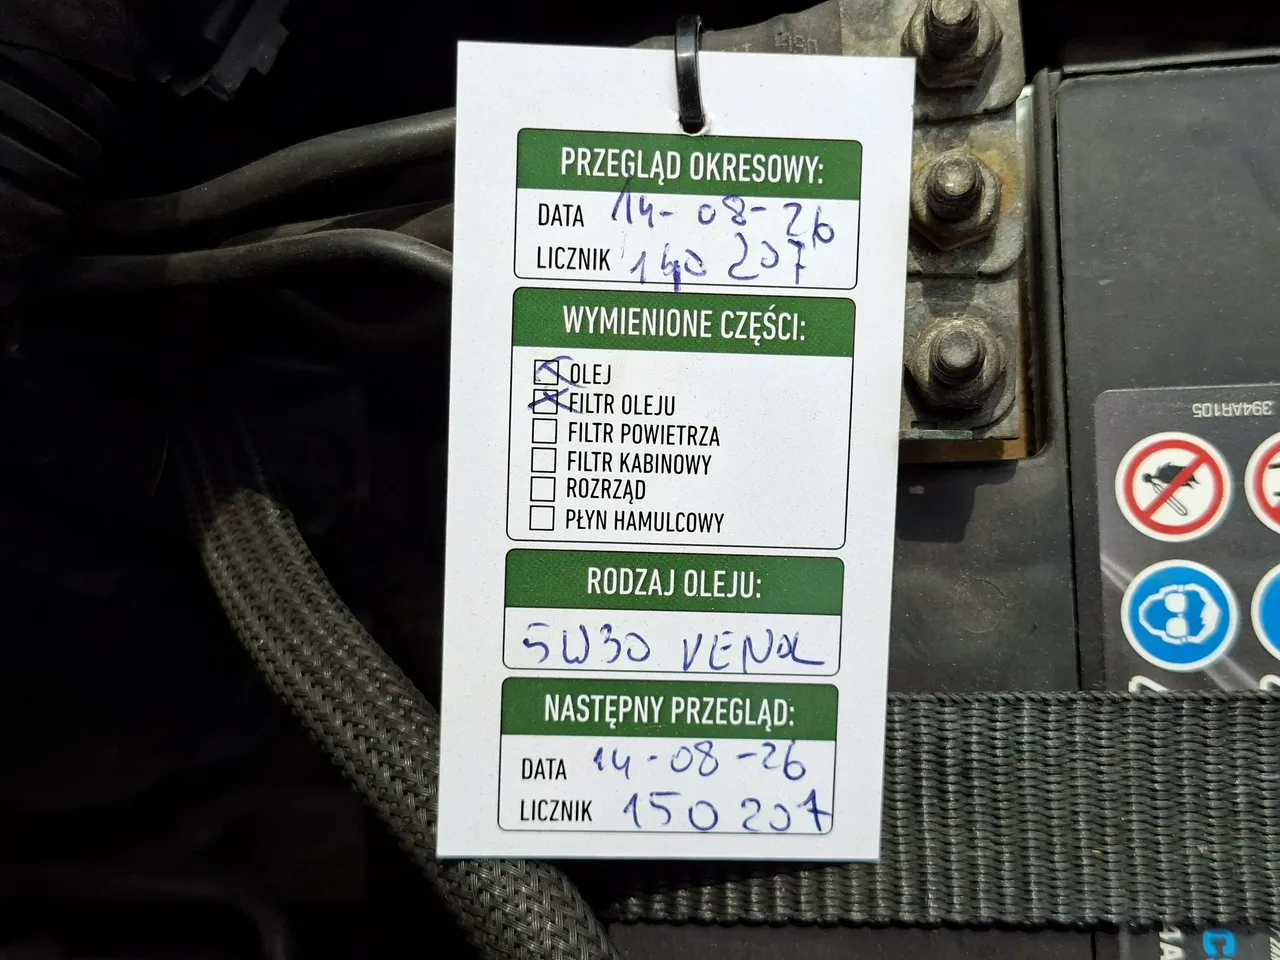 PRZEGLĄD OKRESOWY:
DATA 14-08-26
LICZNIK 140 207
WYMIENIONE CZĘŚCI:
OLEJ
FILTR OLEJU
FILTR POWIETRZA
FILTR KABINOWY
ROZRZĄD
PŁYN HAMULCOWY
RODZAJ OLEJU:
5W30 VENOL
NASTĘPNY PRZEGLĄD:
DATA 14-08-26
LICZNIK 150 207
394AR105